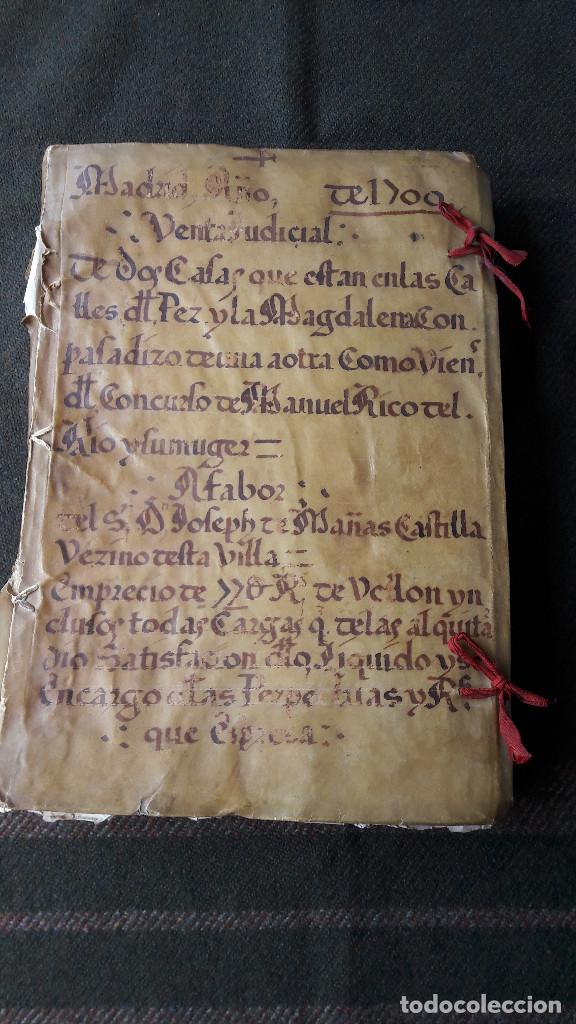 Madrid, Año, de 1700
Venta Judicial:
de dos Casas que estan en las Ca
lles dl Pez y la Magdalena Con
pasadizo de una a otra Como Vien
dl Concurso de Manuel Rico del
Rio y su muger =
A fabor
del S. Dn Joseph de Mañas Castilla
Vezino desta Villa =
En precio de de Vellon yn
clusos todas Cargas q de las al quita
dio Satisfacion dlo Liquido y se
Encargo dlas Perpetuas y Rs
que Espresa:
todocoleccion.net